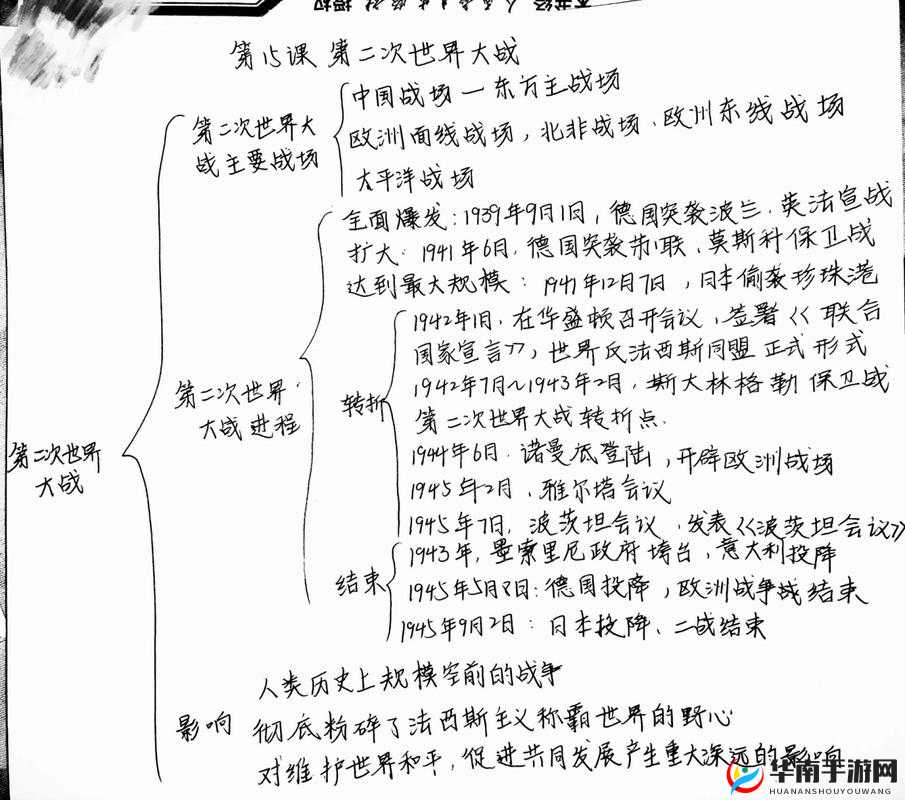 第15课 第二次世界大战
第二次世界大
战主要战场
中国战场一东方主战场
欧洲面线战场，北非战场、欧州东线战场
太平洋战场
第二次世界
大战
第二次世界
大战进程
全面爆发：1939年9月1日，德国突袭波兰．英法宣战
扩大：1941年6月．德国突袭苏联、莫斯科保卫战
达到最大规模：1941年12月7日，日本偷袭珍珠港
转折
1942年1月．在华盛顿召开会议，签署《联合
国家宣言》，世界反法西斯同盟正式形式
1942年7月~1943年2月．斯大林格勒保卫战
第二次世界大战转折点．
1944年6月．诺曼底登陆，开辟欧洲战场
1945年2月．雅尔塔会议
1945年7月．波茨坦会议．发表《波茨坦会议》
结束
1943年，墨索里尼政府垮台，意大利投降
1945年5月8日：德国投降，欧洲战争战结束
1945年9月2日：日本投降、二战结束
影响
人类历史上规模空前的战争
彻底粉碎了法西斯主义称霸世界的野心
对维护世界和平，促进共同发展产生重大深远的影响
华南手游网
HUANANSHOUYOUWANG